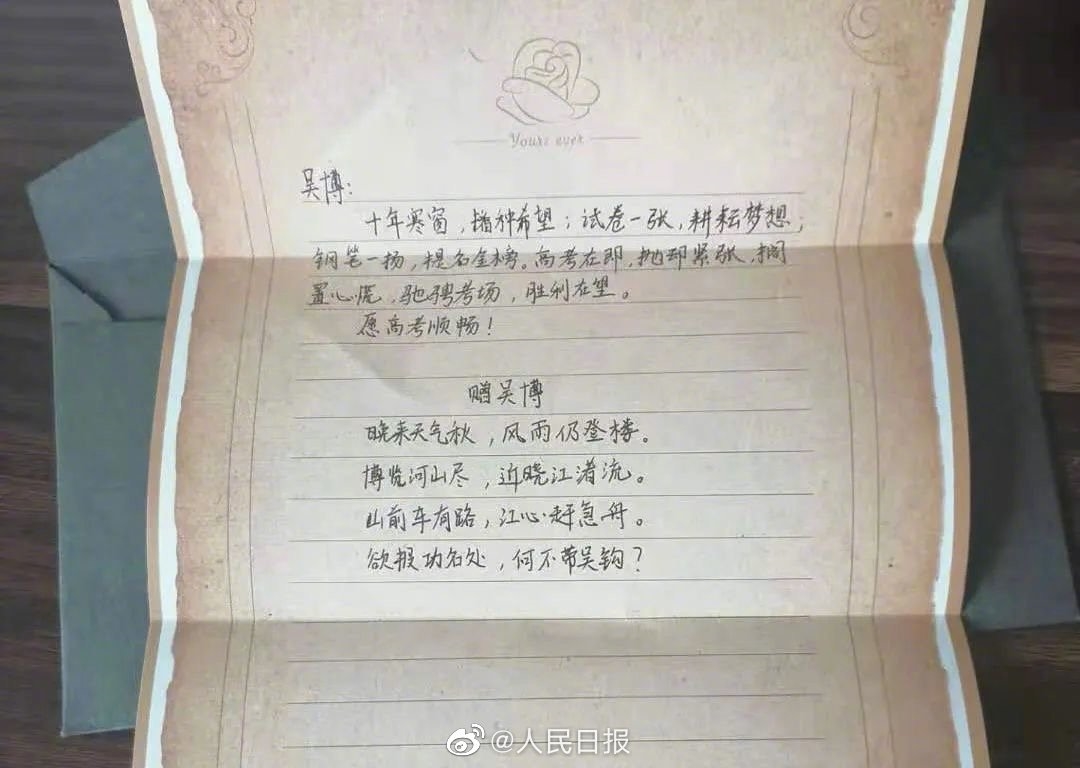 Yours ever
吴博:
十年寒窗，播种希望；试卷一张，耕耘梦想；
钢笔一扬，提名金榜。高考在即，抛却紧张，搁
置心慌，驰骋考场，胜利在望。
愿高考顺畅！
赠吴博
晚来天气秋，风雨仍登楼。
博览河山尽，近晓江渚流。
山前车有路，江心赶急舟。
欲报功名处，何不带吴钩？
@人民日报